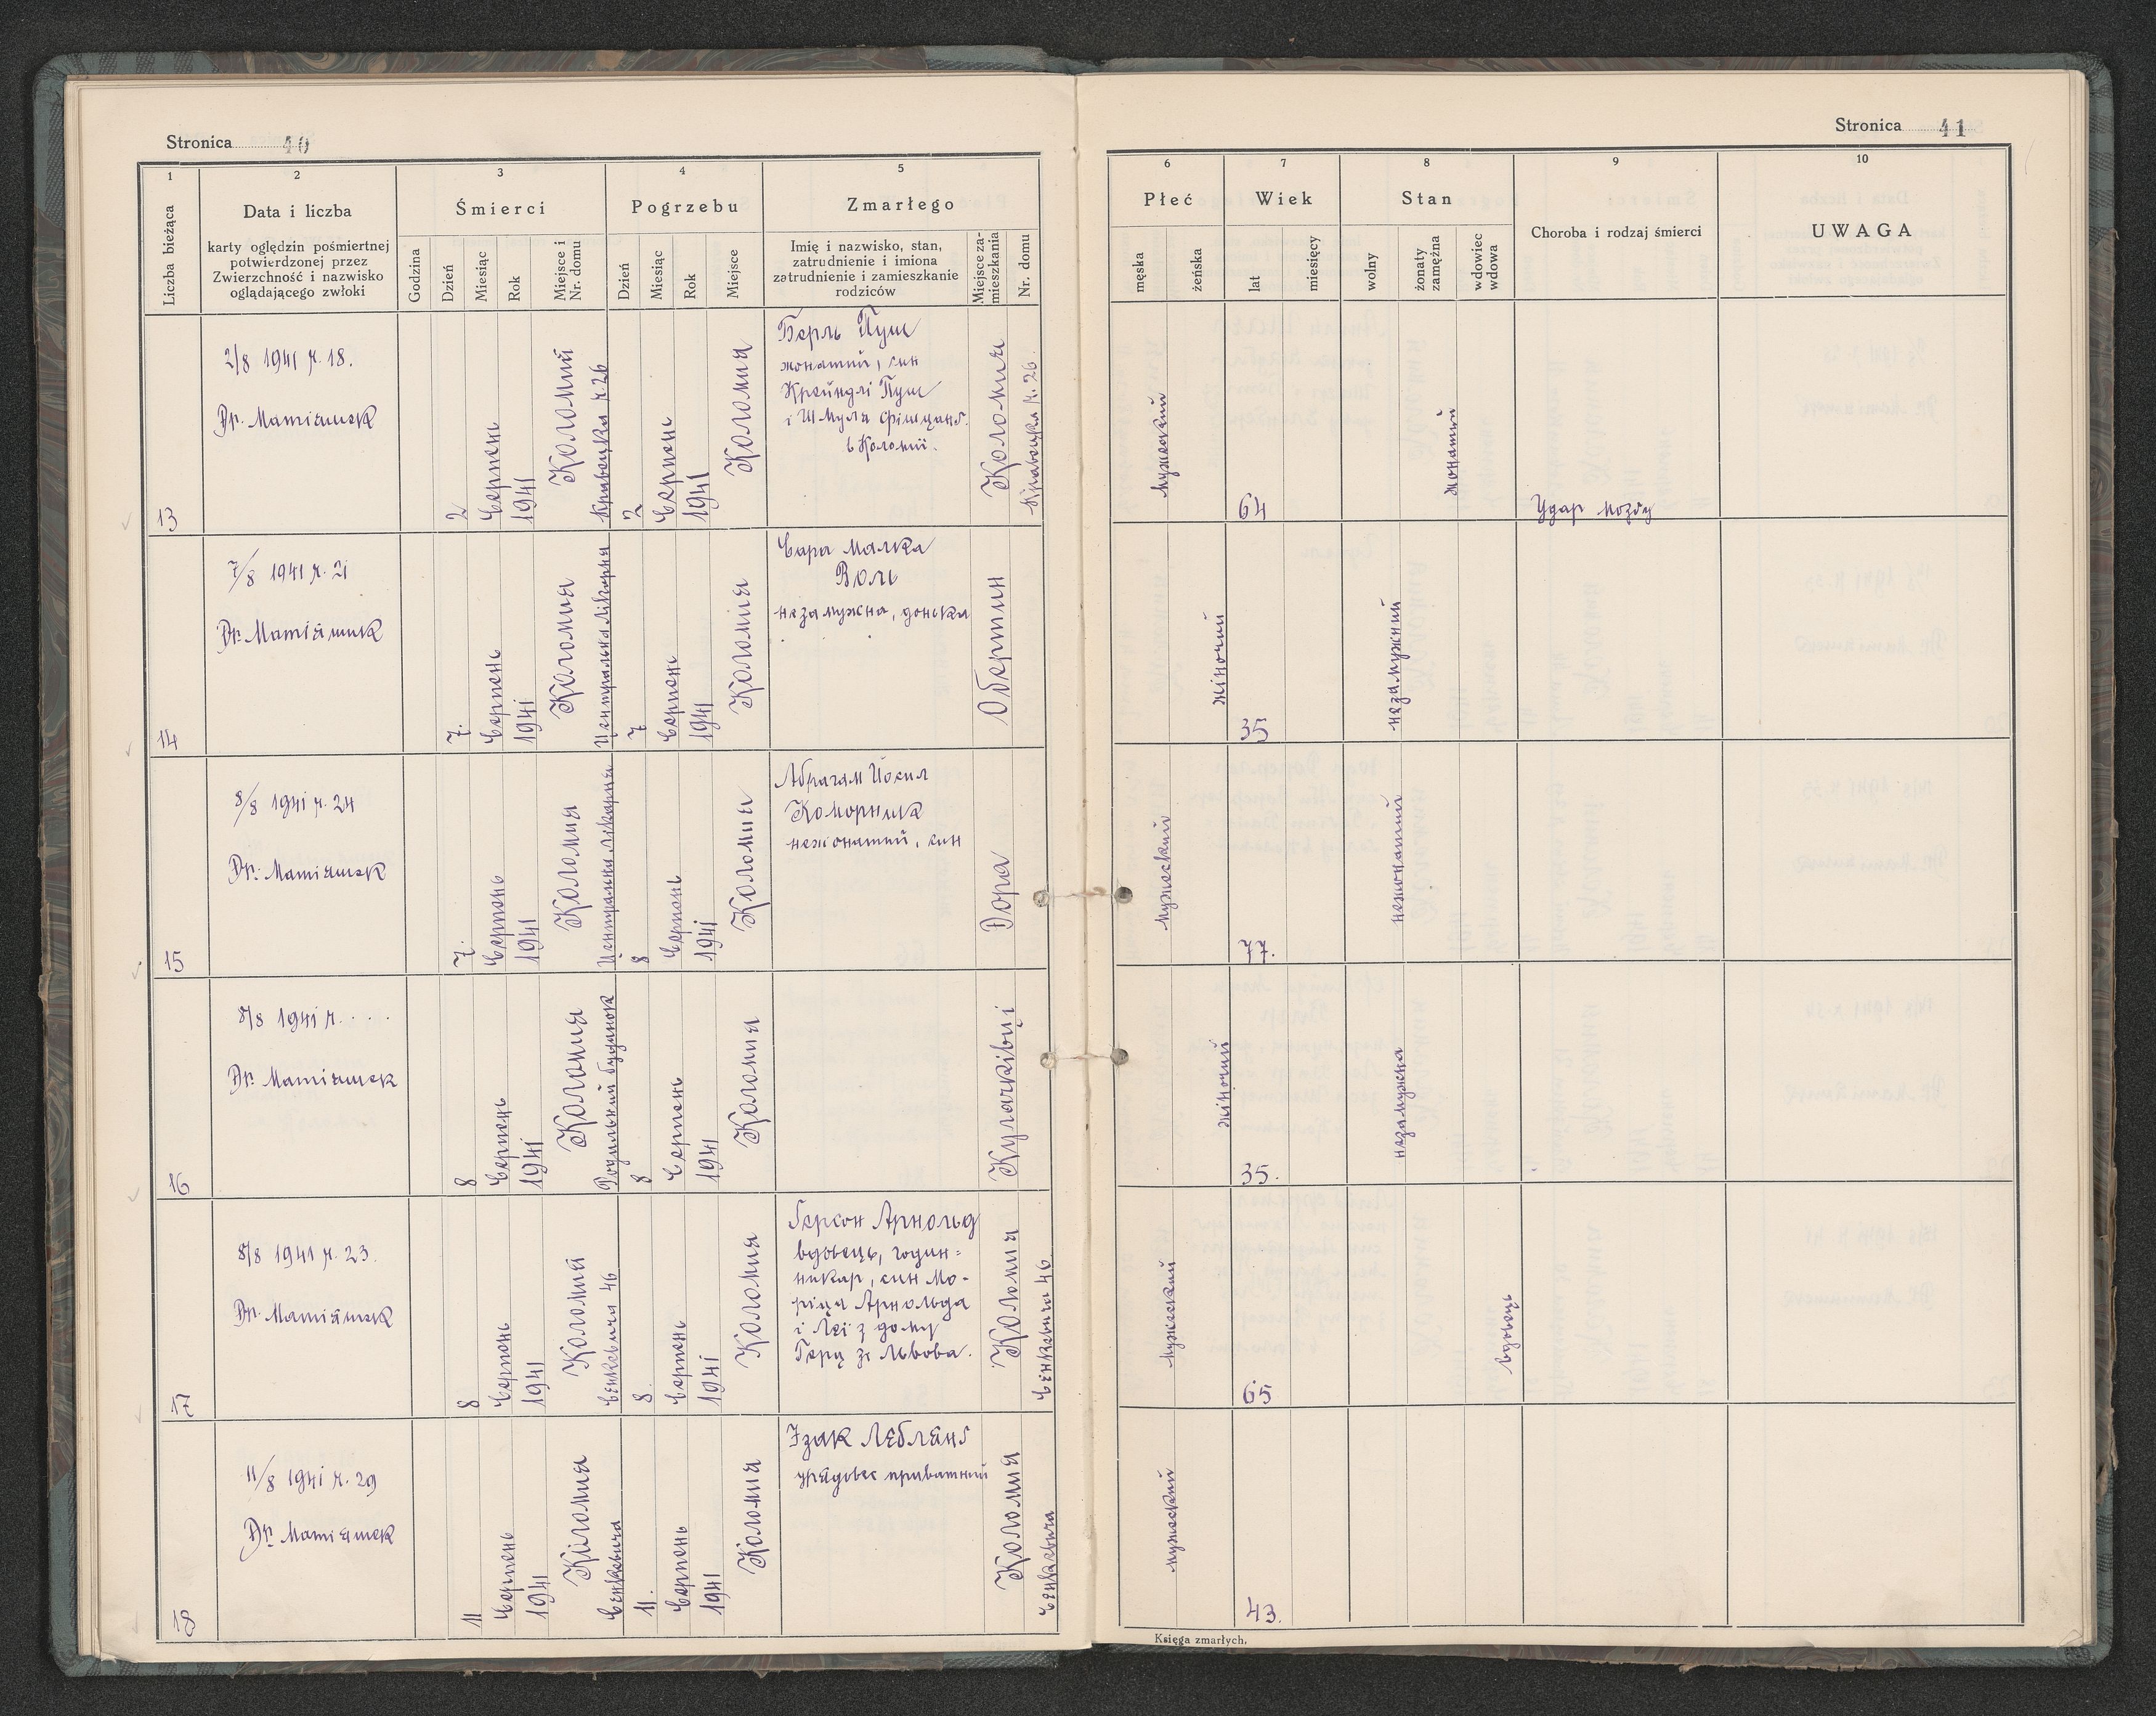 Stronica 40
1
2
3
4
5
Liczba bieżąca
Data i liczba
karty oględzin pośmiertnej
potwierdzonej przez
Zwierzchność i nazwisko
oglądającego zwłoki
Śmierci
Godzina
Dzień
Miesiąc
Rok
Miejsce i
Nr. domu
Pogrzebu
Dzień
Miesiąc
Rok
Miejsce
Zmarłego
Imię i nazwisko, stan,
zatrudnienie i imiona
zatrudnienie i zamieszkanie
rodziców
Miejsce za-
mieszkania
Nr. domu
13
2/8 1941 ч. 18.
Др. Матіяшек
2
Серпень
1941
Коломий
Кравецка ч. 26
2
Серпень
1941
Коломия
Берль Пуш
жонатий, син
Крейндлі Пуш
і Шмуля
в Коломиї.
Коломия
Кравецка ч. 26.
14
7/8 1941 ч. 21
Др. Матіяшек
7.
Серпень
1941
Коломия
Центральна Лікарня
7
Серпень
1941
Коломия
Сара Малка
Воль
незамужна, донька
Обертин
15
8/8 1941 ч. 24
Др. Матіяшек
7.
Серпень
1941
Коломия
Центральна Лікарня
8
Серпень
1941
Коломия
Абрагам Йосил
Коморник
нежонатий, син
Дора
16
8/8 1941 ч. . . . .
Др. Матіяшек
8
Серпень
1941
Коломия
Родильний будинок
8
Серпень
1941
Коломия
Кулачківці
17
8/8 1941 ч. 23.
Др. Матіяшек
8
Серпень
1941
Коломий
Сенкевича 46
8.
Серпень
1941
Коломия
Герсон Арнольд
вдовець, годин=
никар, син Мо-
ріца Арнольда
і Леї з дому
Герц зі Львова.
Коломия
Сенкевича 46
18
11/8 1941 ч. 29
Др. Матіяшек
11
Серпень
1941
Коломия
Сенкевича
11.
Серпень
1941
Коломия
Ізак Лєблянг
урядовєс приватний
Коломия
Сенкевича
Stronica 41
6
7
8
9
10
Płeć
męska
żeńska
Wiek
lat
miesięcy
Stan
wolny
żonaty
zamężna
wdowiec
wdowa
Choroba i rodzaj śmierci
UWAGA
мужеский
64
жонатий
Удар мозгу
жіночий
35
незамужний
мужеский
77.
нежонатий
жіночий
35.
незамужна
мужеский
65
вдовець
мужеский
43.
Księga zmarłych.